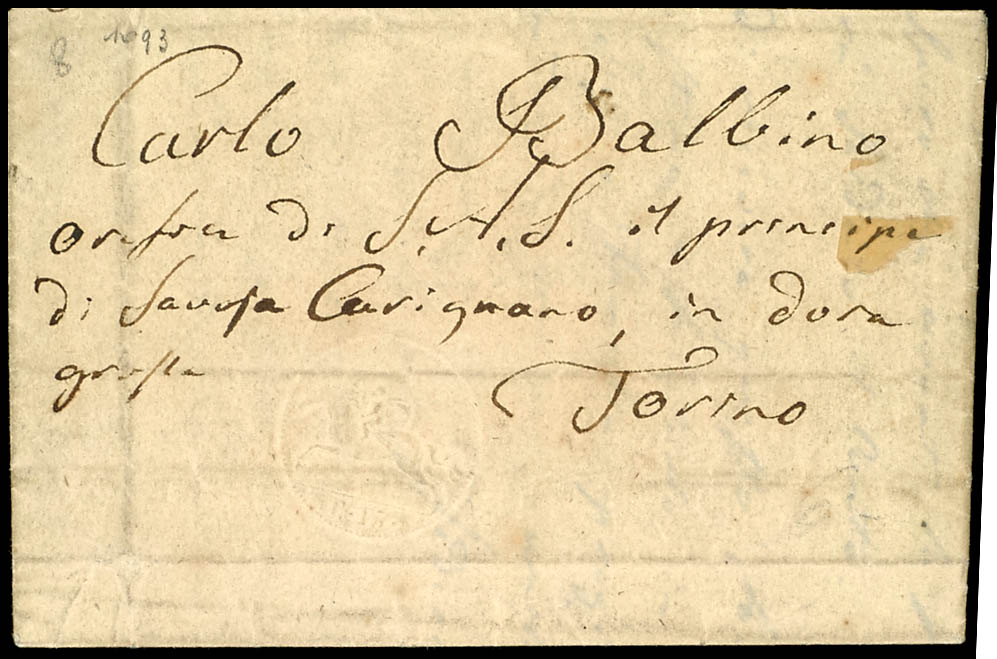 8 1093
Carlo Balbino
orefice di S.A.S. il principe
di Savoja Carignano, in dora
grossa
Torino